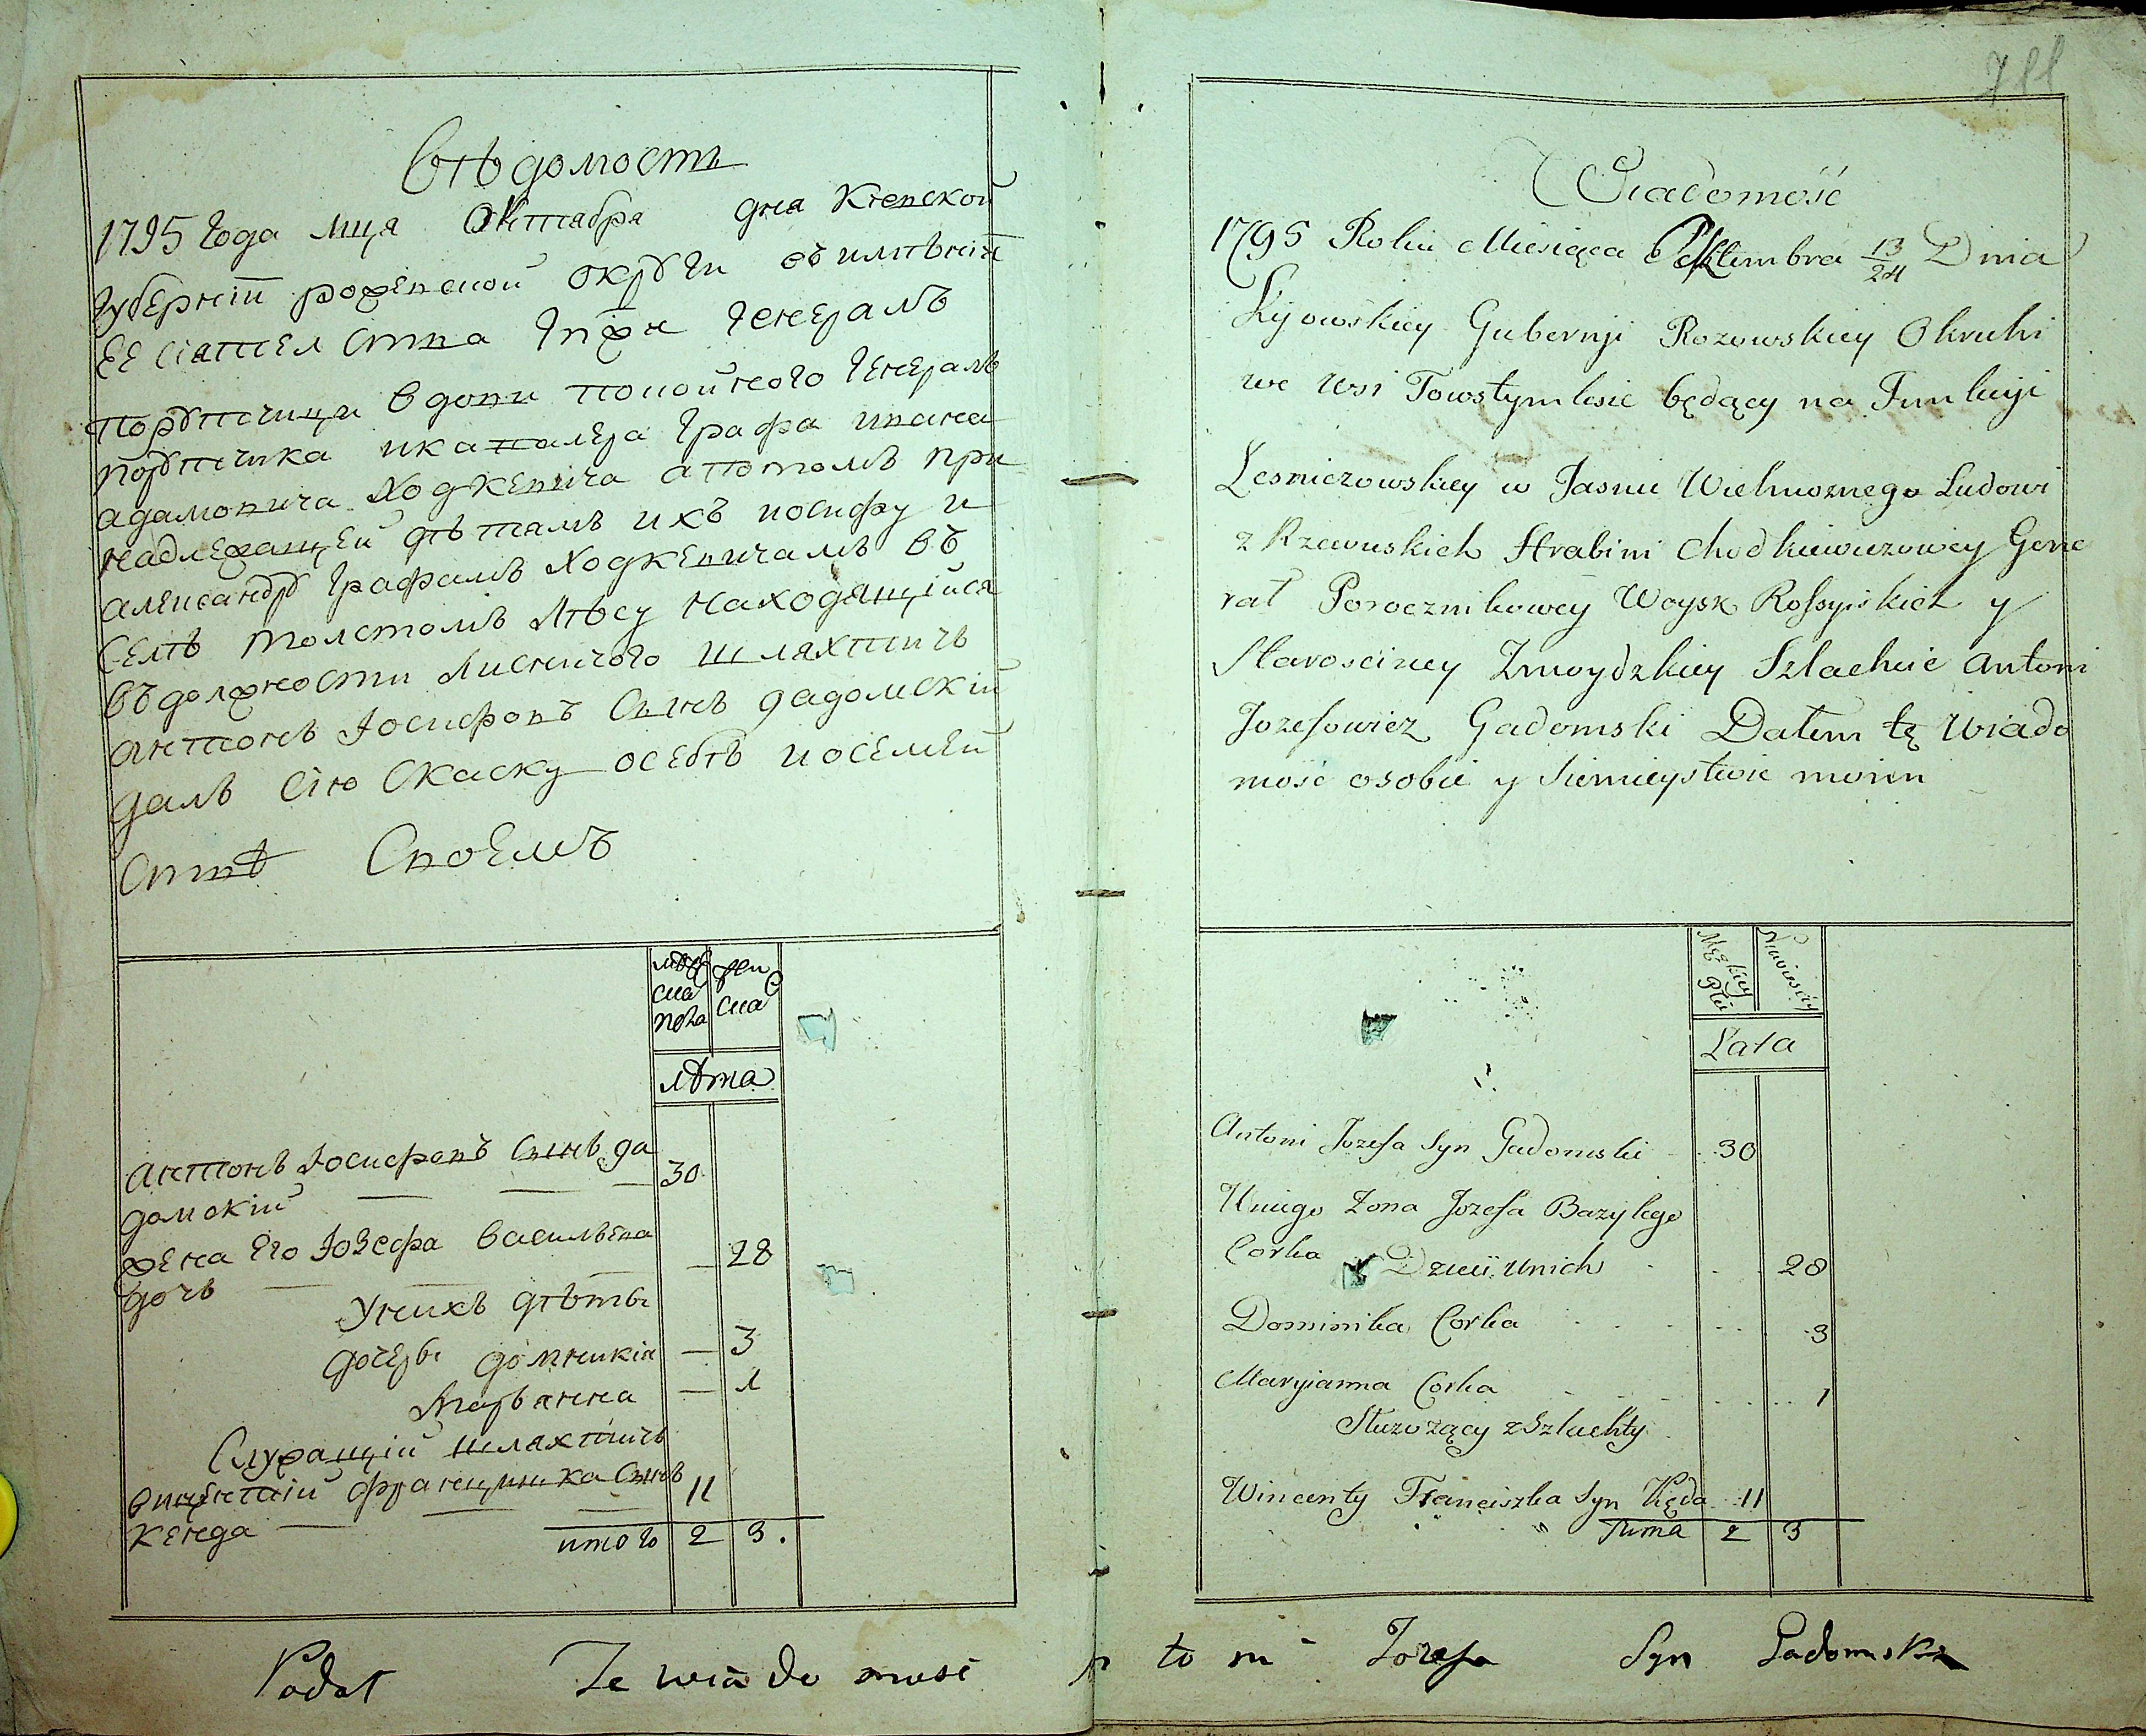 Вѣдомость
1795 года мца Октабря дня Киевской
губернїи роженской округи въ имѣнїи
ее сїятелства гпжи генералъ
порутчици вдови покойного генералъ
порутчика и каналера графа ивана
адамовича Ходкевича а потомъ при
надлежащей дѣтямъ ихъ иосифу и
александру графамъ Ходкевичамъ въ
селѣ толстомъ лѣсу находящїйся
въ должности лисничого шляхтичь
антонъ Іосифовъ сынъ гадомскїй
далъ сїю скаску о себѣ и о семей
ствѣ своемъ
мужс
ска
пола
жен
ска
лѣта
антонъ Іосифовъ сынъ га
домскїй 30
жена его Іозефа василвева
дочь 28
У нихъ дѣты
дочеры домникїя 3
Марьянна 1
Служащїй шляхтичь
винцентїй францишка сынъ
кенда 11
итого 2 3.
711
Wiadomość
1795 Roku Miesiąca Oktembra 13/24 Dnia
Kyowskiey Gubernji Rozowskiey Okruhi
we wsi Towstymlesie będący na Funkcyi
Lesniczowskiey w Jasnie Wielmoznego Ludowi
z Rzewuskich Hrabini Chodkiewiczowey Gene
rał Porocznikowey Woysk Rossyiskich y
Starosciney Zmoydzkiey Szlachcic Antoni
Jozefowicz Gadomski Dałem tę Wiado
mość o sobie y Siemieystwie moien
Męzkiey Płci
Niewieściey
Lata
Antoni Jozefa Syn Gadomski 30
U niego Zona Jozefa Bazylego
Corka Dzieci u nich 28
Dominika Corka 3
Maryianna Corka 1
Słuzozący z Szlachty
Wincenty Franciszka Syn Kęda 11
Suma 2 3
Podał Ze wia do mosc to ni Jozefa Syn Gadomski